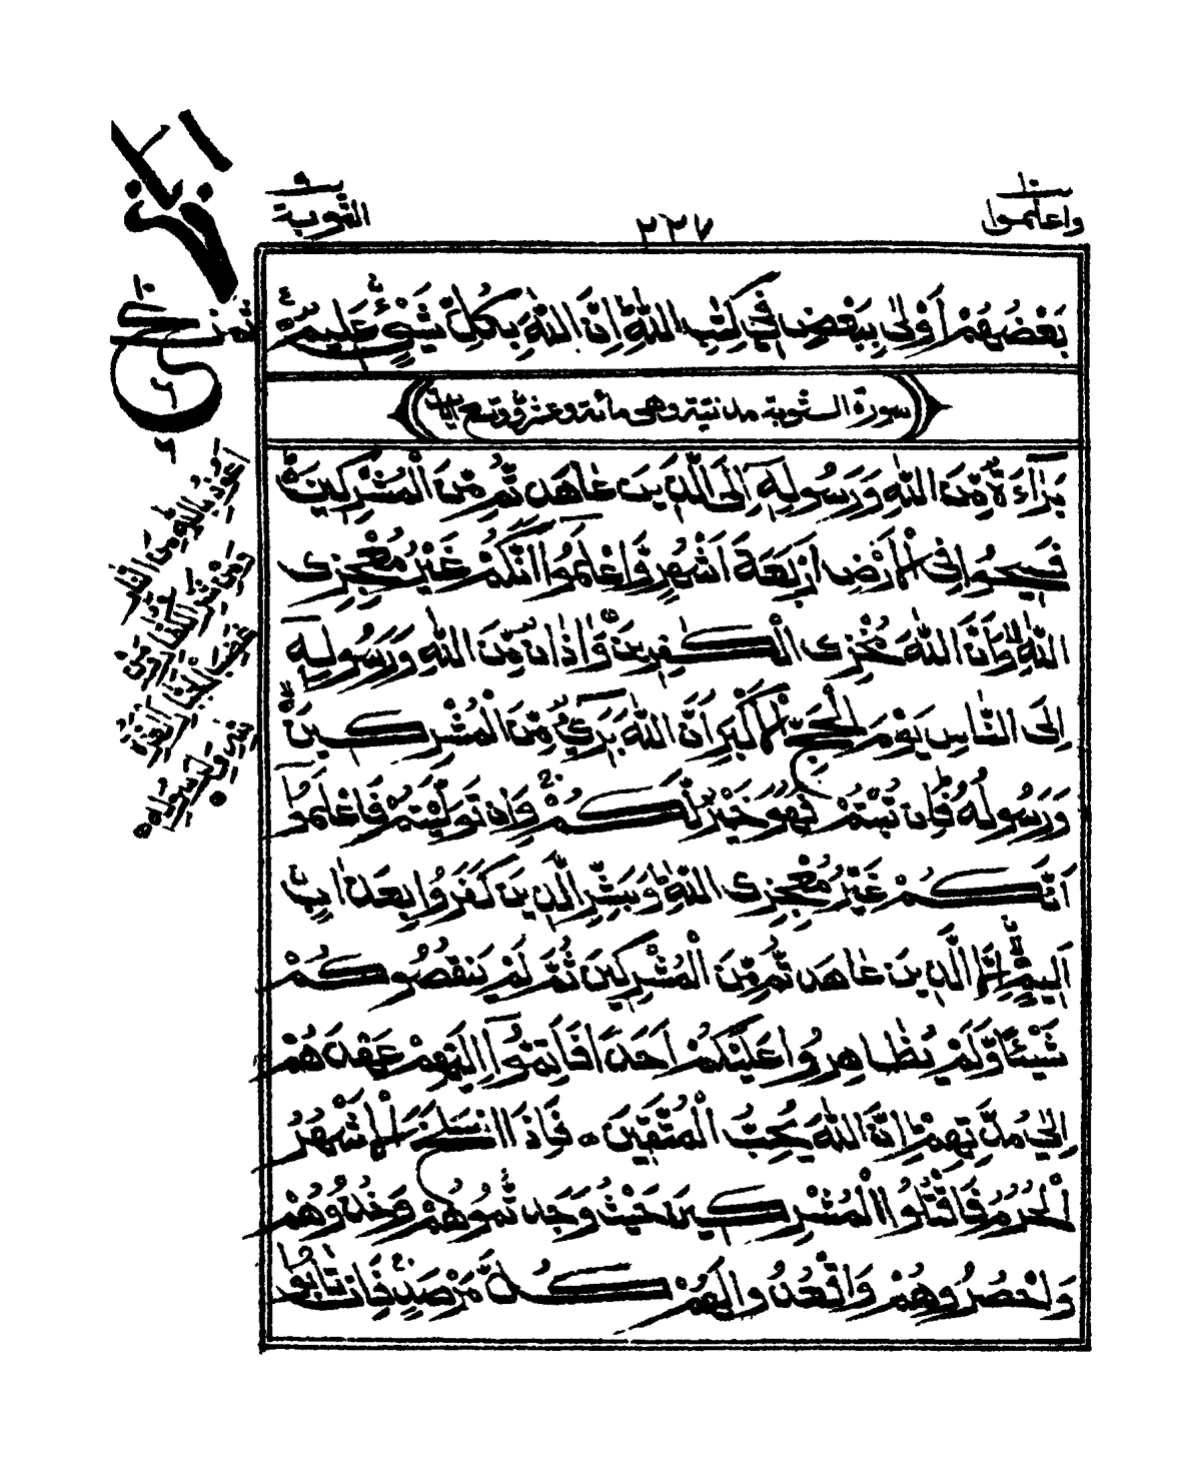 واعلموا ١٠
٢٢٧
التوبة ٩
بَعْضُهُمْ اَوْلٰى بِبَعْضٍ فِيْ كِتٰبِ اللّٰهِؕ اِنَّ اللّٰهَ بِكُلِّ شَيْءٍ عَلِيْمٌ
سورة التوبة مدنية وهي مائة وعشرون وتسع اٰيات
بَرَآءَةٌ مِّنَ اللّٰهِ وَرَسُوْلِهٖۤ اِلَى الَّذِيْنَ عٰاهَدْتُّمْ مِّنَ الْمُشْرِكِيْنَؕ
فَسِيْحُوْا فِى الْاَرْضِ اَرْبَعَةَ اَشْهُرٍ وَّاعْلَمُوْۤا اَنَّكُمْ غَيْرُ مُعْجِزِى
اللّٰهِۙ وَاَنَّ اللّٰهَ مُخْزِى الْكٰفِرِيْنَ وَاَذَانٌ مِّنَ اللّٰهِ وَرَسُوْلِهٖۤ
اِلَى النَّاسِ يَوْمَ الْحَجِّ الْاَكْبَرِ اَنَّ اللّٰهَ بَرِيْٓءٌ مِّنَ الْمُشْرِكِيْنَ
وَرَسُوْلُهٗؕ فَاِنْ تُبْتُمْ فَهُوَ خَيْرٌ لَّكُمْۚ وَاِنْ تَوَلَّيْتُمْ فَاعْلَمُوْۤا
اَنَّكُمْ غَيْرُ مُعْجِزِى اللّٰهِؕ وَبَشِّرِ الَّذِيْنَ كَفَرُوْا بِعَذَابٍ
اَلِيْمٍۙ اِلَّا الَّذِيْنَ عٰاهَدْتُّمْ مِّنَ الْمُشْرِكِيْنَ ثُمَّ لَمْ يَنْقُصُوْكُمْ
شَيْئًا وَّلَمْ يُظَاهِرُوْا عَلَيْكُمْ اَحَدًا فَاَتِمُّوْۤا اِلَيْهِمْ عَهْدَهُمْ
اِلٰى مُدَّتِهِمْؕ اِنَّ اللّٰهَ يُحِبُّ الْمُتَّقِيْنَ ۝ فَاِذَا انْسَلَخَ الْاَشْهُرُ
الْحُرُمُ فَاقْتُلُوا الْمُشْرِكِيْنَ حَيْثُ وَجَدْتُّمُوْهُمْ وَخُذُوْهُمْ
وَاحْصُرُوْهُمْ وَاقْعُدُوْا لَهُمْ كُلَّ مَرْصَدٍۚ فَاِنْ تَابُوْا
اَعُوْذُ بِاللّٰهِ مِنَ النَّارِ
وَمِنْ شَرِّ الْكُفَّارِ وَمِنْ
غَضَبِ الْجَبَّارِ الْعِزَّةُ
لِلّٰهِ وَلِرَسُوْلِهٖ